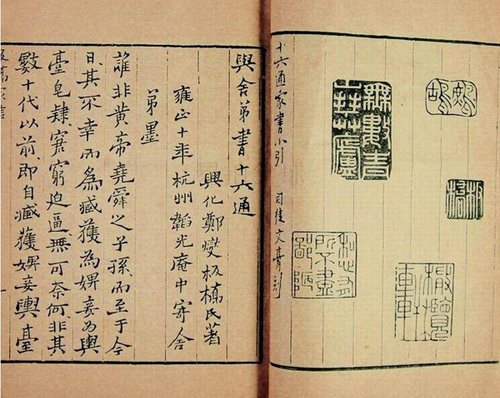 十六通家書小引
司徒文膏刻
與舍弟書十六通
興化鄭燮板橋氏著
雍正十年杭州韜光菴中寄舍
弟墨
誰非黃帝堯舜之子孫而至于今
日其不幸而為臧獲為婢妾為輿
臺皂隸窘窮迫逼無可奈何非其
數十代以前即自臧獲婢妾輿臺